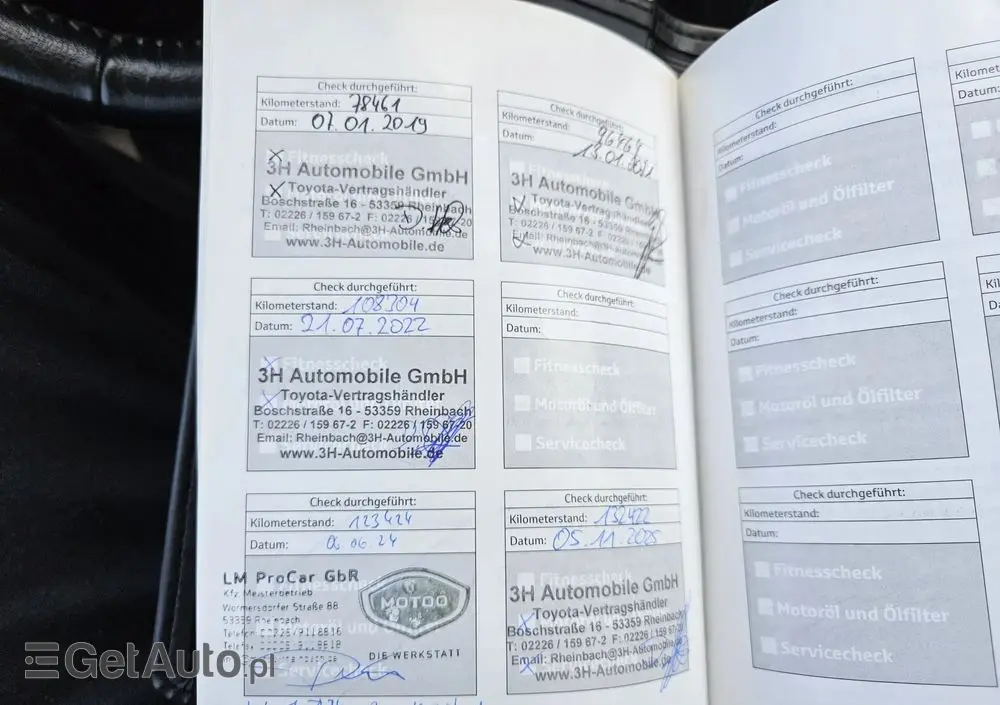 Check durchgeführt:
Kilometerstand: 78461
Datum: 07.01.2019
Fitnesscheck
3H Automobile GmbH
Toyota-Vertragshändler
Boschstraße 16 - 53359 Rheinbach
T: 02226 / 159 67-2 F: 02226 / 159 67-20
Email: Rheinbach@3H-Automobile.de
www.3H-Automobile.de
Check durchgeführt:
Kilometerstand: 96464
Datum: 13.01.2021
3H Automobile GmbH
Toyota-Vertragshändler
Boschstraße 16 - 53359 Rheinbach
T: 02226 / 159 67-2 F: 02226 / 159 67-20
Email: Rheinbach@3H-Automobile.de
www.3H-Automobile.de
Check durchgeführt:
Kilometerstand: 108304
Datum: 21.07.2022
Fitnesscheck
3H Automobile GmbH
Toyota-Vertragshändler
Boschstraße 16 - 53359 Rheinbach
T: 02226 / 159 67-2 F: 02226 / 159 67-20
Email: Rheinbach@3H-Automobile.de
www.3H-Automobile.de
Check durchgeführt:
Kilometerstand:
Datum:
Fitnesscheck
Motoröl und Ölfilter
Servicecheck
Check durchgeführt:
Kilometerstand: 123424
Datum: 06.06.24
LM ProCar GbR
Kfz. Meisterbetrieb
Wormersdorfer Straße 88
53359 Rheinbach
MOTOO
DIE WERKSTATT
Check durchgeführt:
Kilometerstand: 132422
Datum: 05.11.2025
Fitnesscheck
3H Automobile GmbH
Toyota-Vertragshändler
Boschstraße 16 - 53359 Rheinbach
T: 02226 / 159 67-2 F: 02226 / 159 67-20
Email: Rheinbach@3H-Automobile.de
www.3H-Automobile.de
Check durchgeführt:
Kilometerstand:
Datum:
Fitnesscheck
Motoröl und Ölfilter
Servicecheck
Check durchgeführt:
Kilometerstand:
Datum:
Fitnesscheck
Motoröl und Ölfilter
Servicecheck
Check durchgeführt:
Kilometerstand:
Datum:
Fitnesscheck
Motoröl und Ölfilter
Servicecheck
Datum:
GetAuto.pl